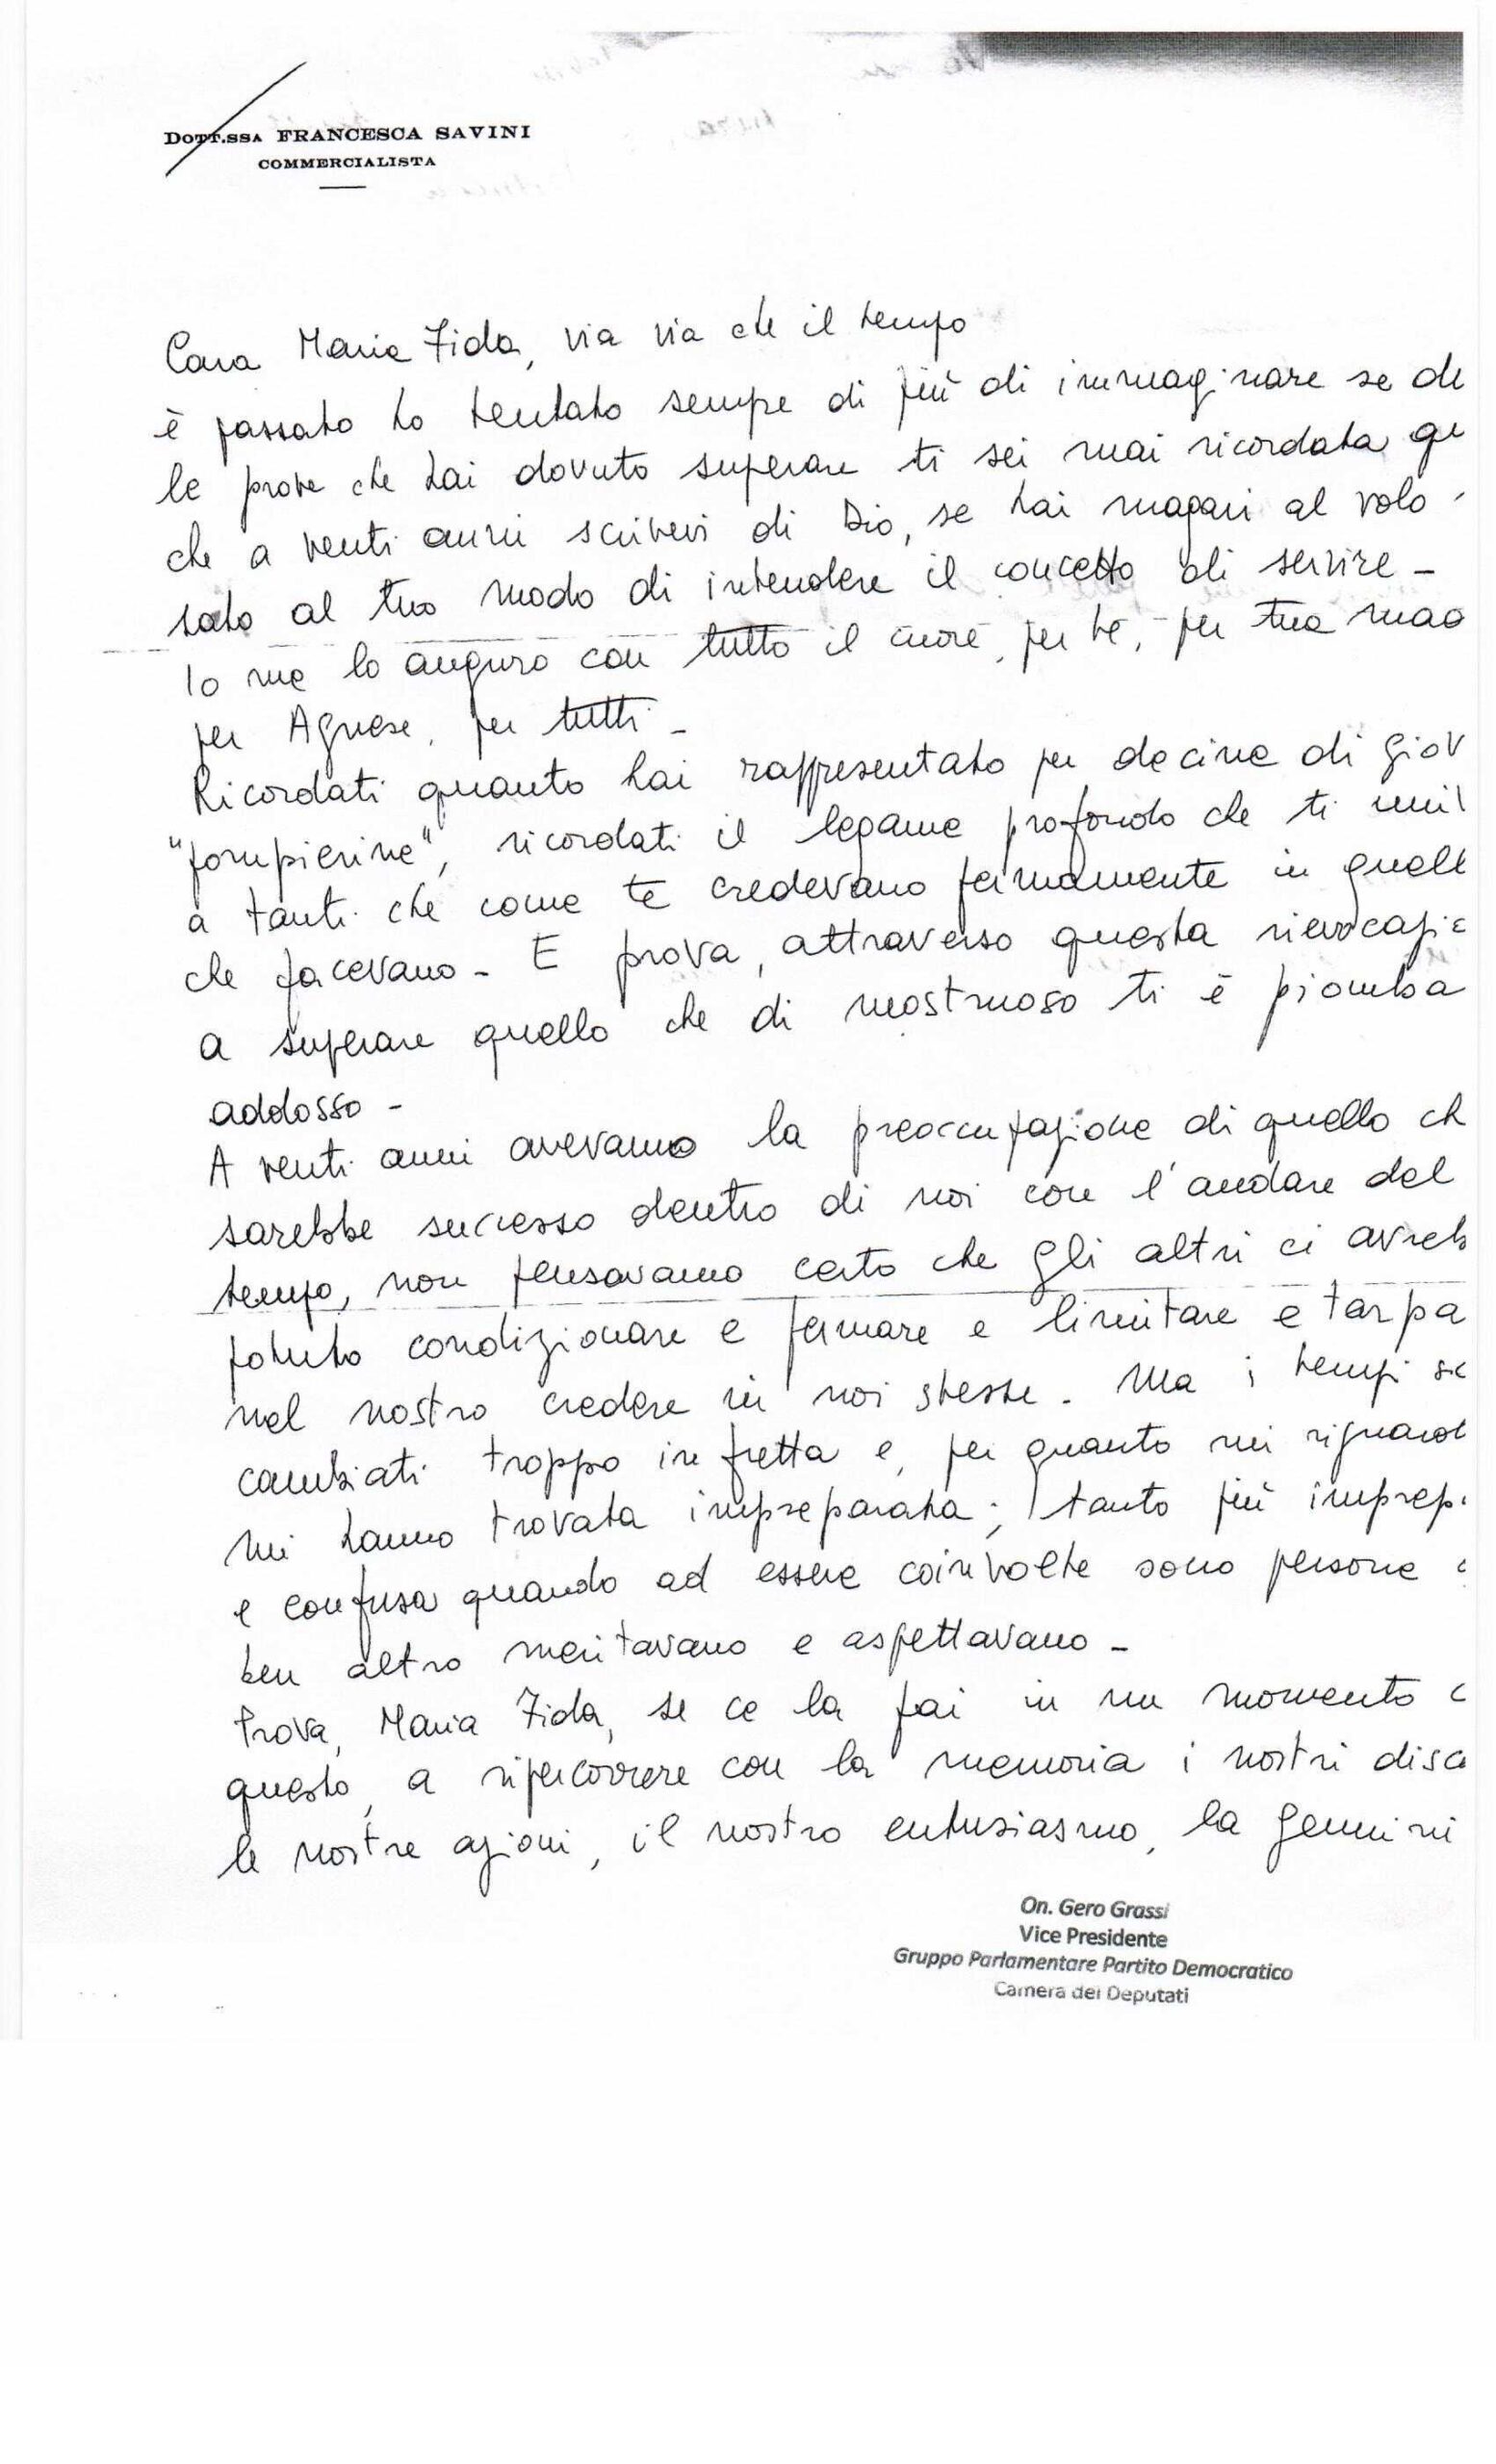 DOTT.SSA FRANCESCA SAVINI
COMMERCIALISTA
Cara Maria Fida, via via che il tempo
è passato ho tentato sempre di più di immaginare se de
le prove che hai dovuto superare ti sei mai ricordata qu
che a venti anni scrivevi di Dio, se hai magari al volo
sato al tuo modo di intendere il concetto di servire -
Io me lo auguro con tutto il cuore, per te, per tua mad
per Agnese, per tutti -
Ricordati quanto hai rappresentato per decine di giov
"pompierine", ricordati il legame profondo che ti univ
a tanti che come te credevano fermamente in quell
che facevano - E prova, attraverso questa rievocazi
a superare quello che di mostruoso ti è piomba
addosso -
A venti anni avevamo la preoccupazione di quello ch
sarebbe successo dentro di noi con l'andare del
tempo, non pensavamo certo che gli altri ci avreb
potuto condizionare e fermare e limitare e tarpa
nel nostro credere in noi stesse - Ma i tempi so
cambiati troppo in fretta e, per quanto mi riguard
mi hanno trovata impreparata; tanto più imprep
e confusa quando ad essere coinvolte sono persone c
ben altro meritavano e aspettavano -
Prova, Maria Fida, se ce la fai in un momento c
questo, a ripercorrere con la memoria i nostri disc
le nostre azioni, il nostro entusiasmo, la genuini
On. Gero Grassi
Vice Presidente
Gruppo Parlamentare Partito Democratico
Camera dei Deputati